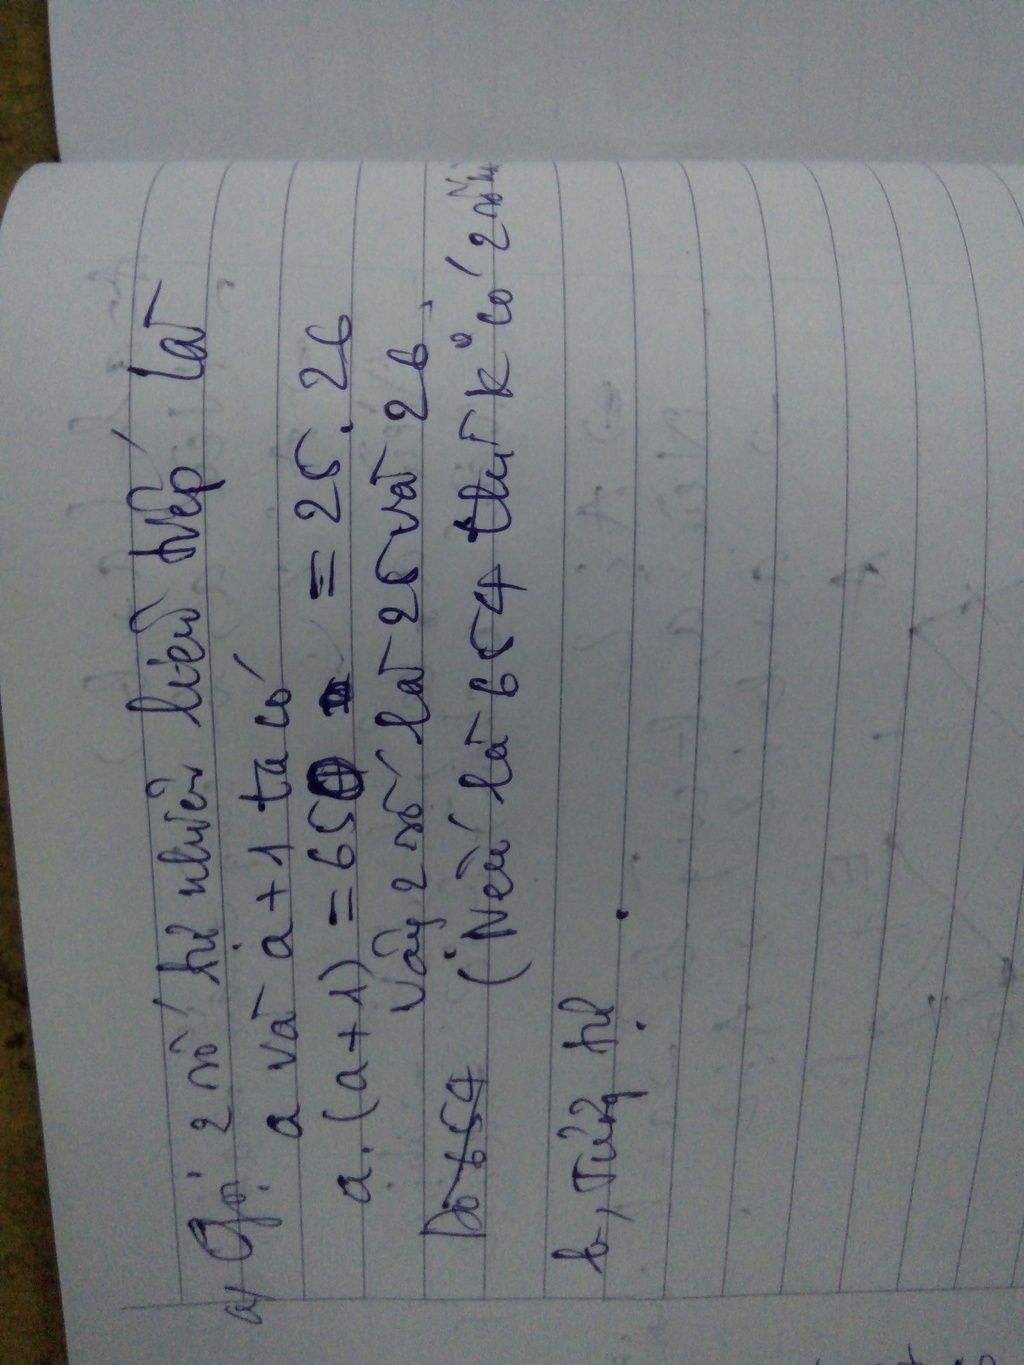 a, Gọi 2 số tự nhiên liên tiếp là
a và a+1 ta có
a.(a+1) = 650 = 25.26
Vậy 2 số là 25 và 26
Do 654 (Nếu là 654 thì k° có 2 số
b, Tương tự.